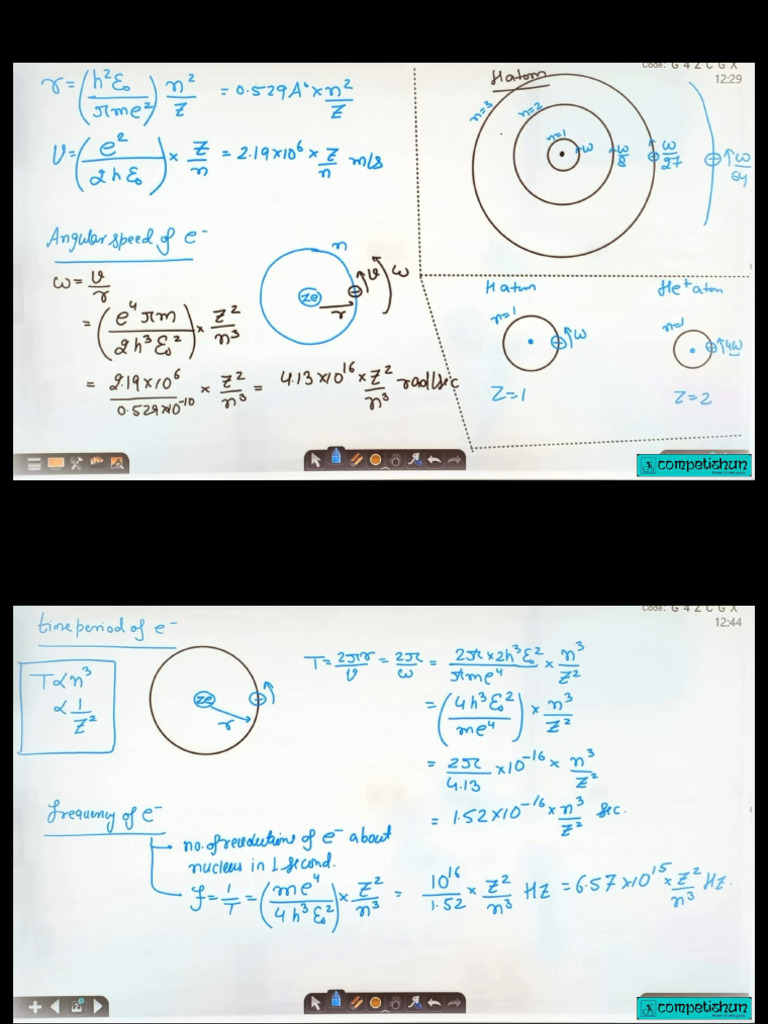 Code: G 4 Z C G X
12:29
r = (h²ε₀/πme²) n²/Z = 0.529 A° × n²/Z
v = (e²/2hε₀) × Z/n = 2.19×10⁶ × Z/n m/s
Angular speed of e⁻
ω = v/r
= (e⁴πm/2h³ε₀²) × Z²/n³
= 2.19×10⁶/0.529×10⁻¹⁰ × Z²/n³ = 4.13×10¹⁶ × Z²/n³ rad/sec
n
ze
r
v
ω
H atom
n=3
n=2
n=1
ω
ω/8
ω/27
ω/64
H atom
n=1
ω
Z=1
He⁺ atom
n=1
4ω
Z=2
competishun
Code: G 4 Z C G X
12:44
time period of e⁻
T ∝ n³
∝ 1/Z²
ze
r
T = 2πr/v = 2π/ω = 2π×2h³ε₀²/πme⁴ × n³/Z²
= (4h³ε₀²/me⁴) × n³/Z²
= 2π/4.13 ×10⁻¹⁶ × n³/Z²
= 1.52×10⁻¹⁶ × n³/Z² sec.
frequency of e⁻
no. of revolutions of e⁻ about
nucleus in 1 second.
f = 1/T = (me⁴/4h³ε₀²) × Z²/n³ = 10¹⁶/1.52 × Z²/n³ HZ = 6.57×10¹⁵ × Z²/n³ HZ.
2
competishun